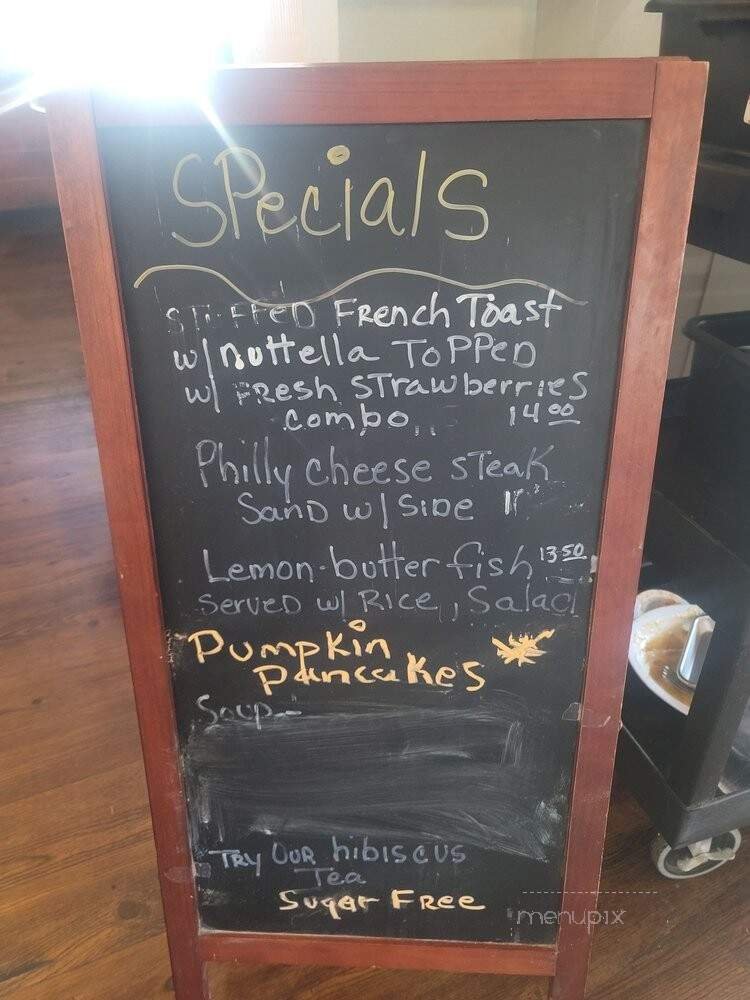 SPecials
STUFFED FRENCH TOAST
w/ nuttella TOPPED
w/ FRESH STrawberries
combo 14.00
Philly cheese STEAK
SanD w/ SIDE
Lemon-butter fish 13.50
Served w/ RICE, Salad
Pumpkin
Pancakes
Soup-
TRY OUR hibiscus
Tea
Sugar Free
menupix